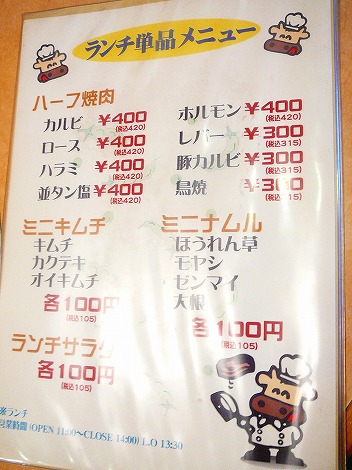 ランチ単品メニュー
ハーフ焼肉
カルビ ¥400
(税込420)
ロース ¥400
(税込420)
ハラミ ¥400
(税込420)
並タン塩 ¥400
(税込420)
ホルモン ¥400
(税込420)
レバー ¥300
(税込315)
豚カルビ ¥300
(税込315)
鳥焼 ¥300
(税込315)
ミニキムチ
キムチ
カクテキ
オイキムチ
各100円
(税込105)
ミニナムル
ほうれん草
モヤシ
ゼンマイ
大根
各100円
(税込105)
ランチサラダ
各100円
(税込105)
※ランチ
営業時間 (OPEN 11:00〜CLOSE 14:00) L.O 13:30